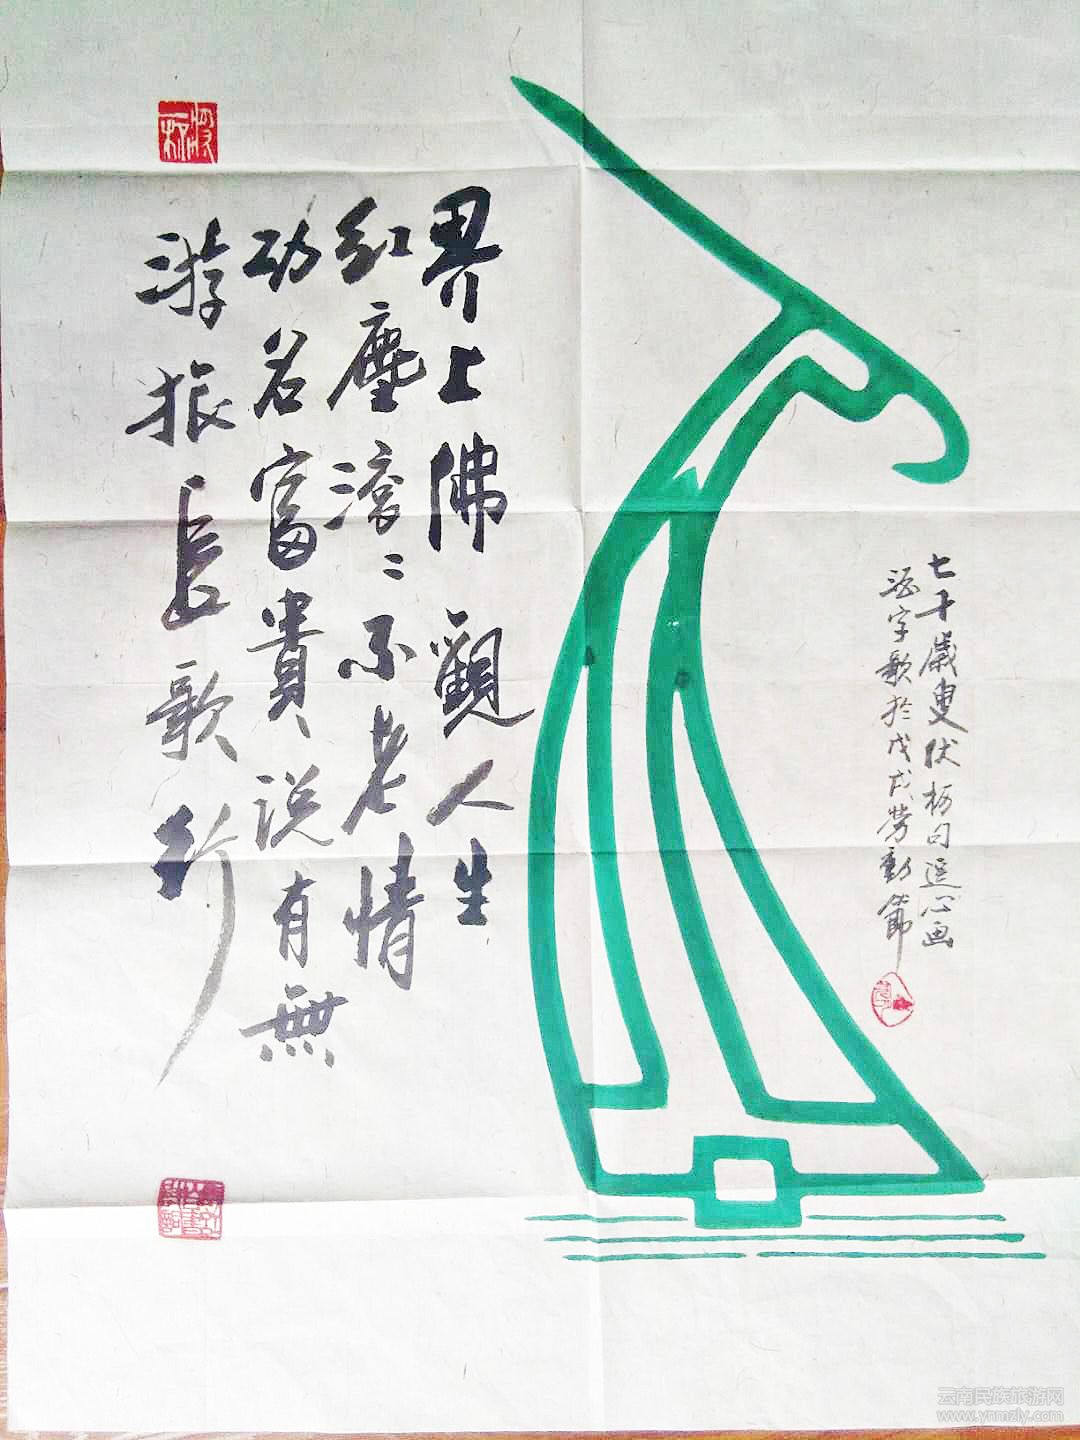 七十歲叟伏枥自遥心画
字歌於戊戌劳動節
界上佛觀人生
红塵滚〻不老情
功名富貴说有無
游振長歌行
云南民族旅游网
www.ynmzly.com